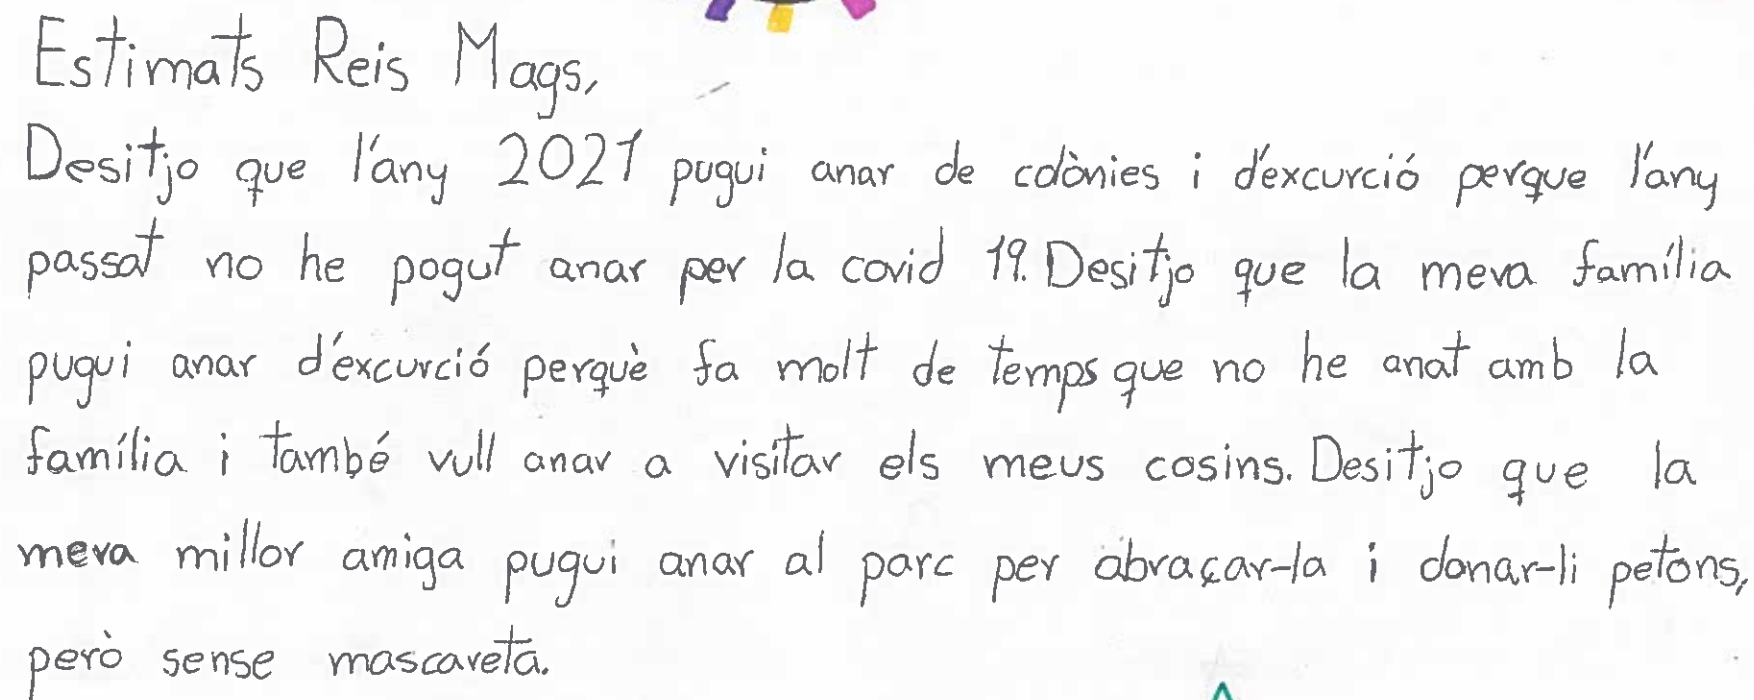 Estimats Reis Mags,
Desitjo que l'any 2021 pugui anar de colònies i d'excurció perque l'any
passat no he pogut anar per la covid 19. Desitjo que la meva família
pugui anar d'excurció perquè fa molt de temps que no he anat amb la
família i també vull anar a visitar els meus cosins. Desitjo que la
meva millor amiga pugui anar al parc per abraçar-la i donar-li petons,
però sense mascareta.